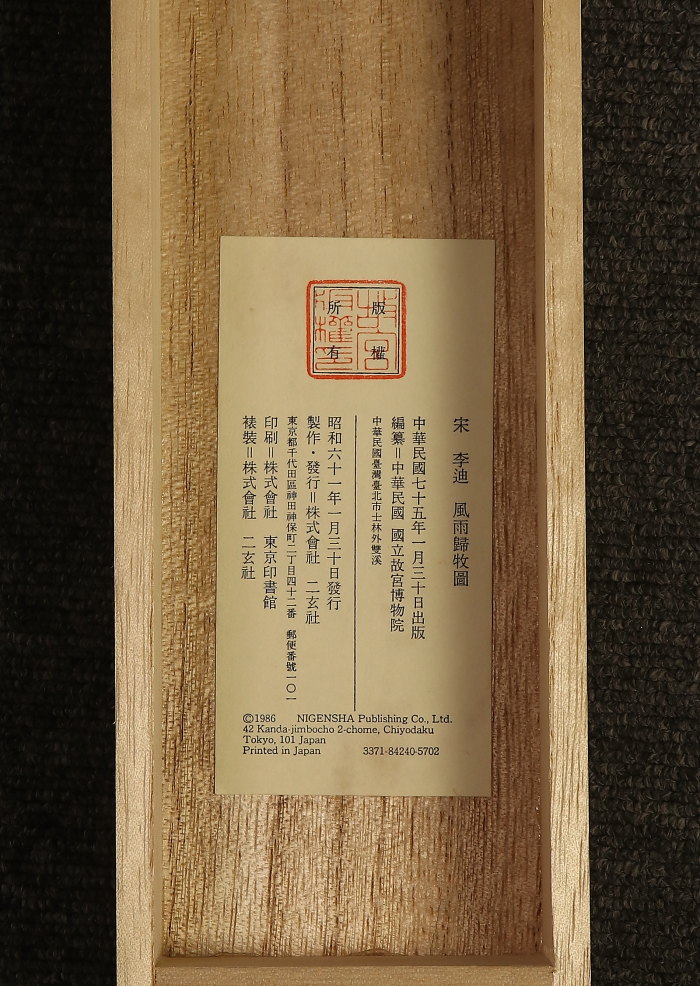 版權
所有
宋　李迪　風雨歸牧圖
中華民國七十五年一月三十日出版
編纂＝中華民國　國立故宮博物院
中華民國臺灣臺北市士林外雙溪
昭和六十一年一月三十日發行
製作・發行＝株式會社　二玄社
東京都千代田區神田神保町二丁目四十二番　郵便番號一〇一
印刷＝株式會社　東京印書館
裱裝＝株式會社　二玄社
©1986　NIGENSHA Publishing Co., Ltd.
42 Kanda-jimbocho 2-chome, Chiyodaku
Tokyo, 101 Japan
Printed in Japan　3371-84240-5702